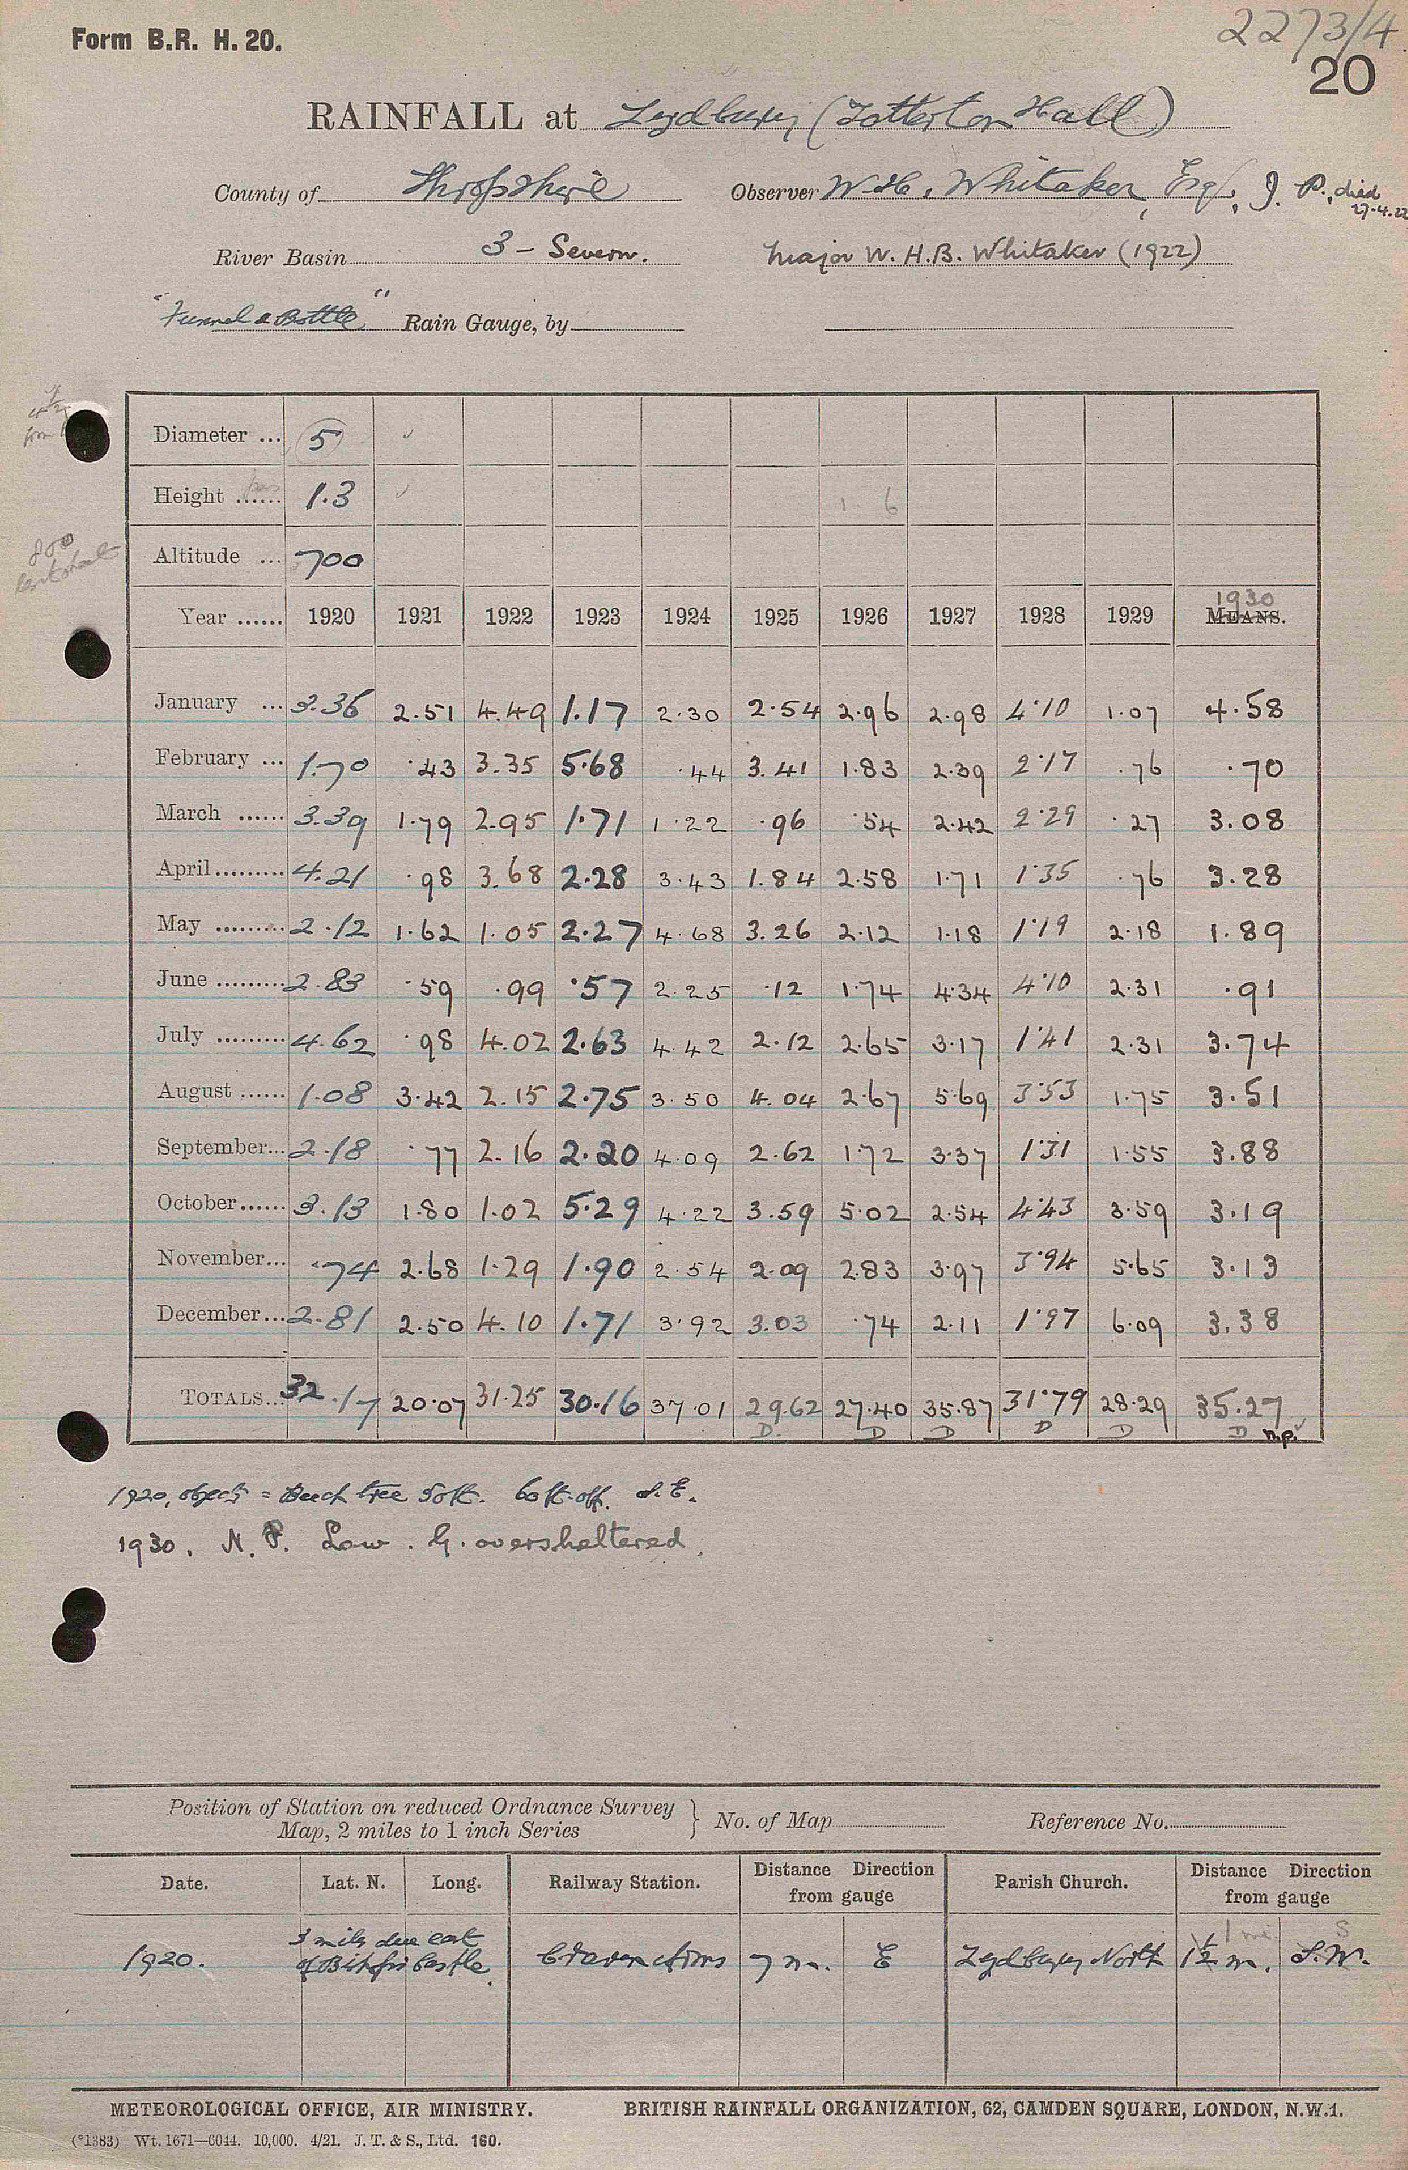 Form B.R. H. 20.
2273/4
20
RAINFALL at Lydbury (Totterton Hall)
County of Shropshire Observer W. H. Whitaker, Esq., J. P., died 27.4.22
River Basin 3 - Severn. Major W. H. B. Whitaker (1922)
"Funnel & Bottle" Rain Gauge, by
Diameter ... 5
Height ...... 1.3 1. 6
Altitude ... 700
800
Year ...... 1920 1921 1922 1923 1924 1925 1926 1927 1928 1929 1930 MEANS.
January ... 3.36 2.51 4.49 1.17 2.30 2.54 2.96 2.98 4.10 1.07 4.58
February ... 1.70 .43 3.35 5.68 .44 3.41 1.83 2.39 2.17 .76 .70
March ...... 3.39 1.79 2.95 1.71 1.22 .96 .54 2.42 2.29 .27 3.08
April......... 4.21 .98 3.68 2.28 3.43 1.84 2.58 1.71 1.35 .76 3.28
May ......... 2.12 1.62 1.05 2.27 4.68 3.26 2.12 1.18 1.19 2.18 1.89
June ......... 2.83 .59 .99 .57 2.25 .12 1.74 4.34 4.10 2.31 .91
July ......... 4.62 .98 4.02 2.63 4.42 2.12 2.65 3.17 1.41 2.31 3.74
August ...... 1.08 3.42 2.15 2.75 3.50 4.04 2.67 5.69 3.53 1.75 3.51
September... 2.18 .77 2.16 2.20 4.09 2.62 1.72 3.37 1.31 1.55 3.88
October...... 3.13 1.80 1.02 5.29 4.22 3.59 5.02 2.54 4.43 3.59 3.19
November... .74 2.68 1.29 1.90 2.54 2.09 2.83 3.97 3.94 5.65 3.13
December... 2.81 2.50 4.10 1.71 3.92 3.03 .74 2.11 1.97 6.09 3.38
TOTALS... 32.17 20.07 31.25 30.16 37.01 29.62 27.40 35.87 31.79 28.29 35.27
D. D D D D D n.p.
1920, objects = Beech tree 50ft. 60ft. off. S. E.
1930. N. P. Low. G. oversheltered.
Position of Station on reduced Ordnance Survey Map, 2 miles to 1 inch Series } No. of Map Reference No.
Date. Lat. N. Long. Railway Station. Distance Direction from gauge Parish Church. Distance Direction from gauge
1 mi S
1920. 3 mils due east of Bishops Castle. Craven Arms 7 m. E Lydbury North 1½ m. S.W.
METEOROLOGICAL OFFICE, AIR MINISTRY. BRITISH RAINFALL ORGANIZATION, 62, CAMDEN SQUARE, LONDON, N.W.1.
(*1383) Wt. 1671—6044. 10,000. 4/21. J. T. & S., Ltd. 160.